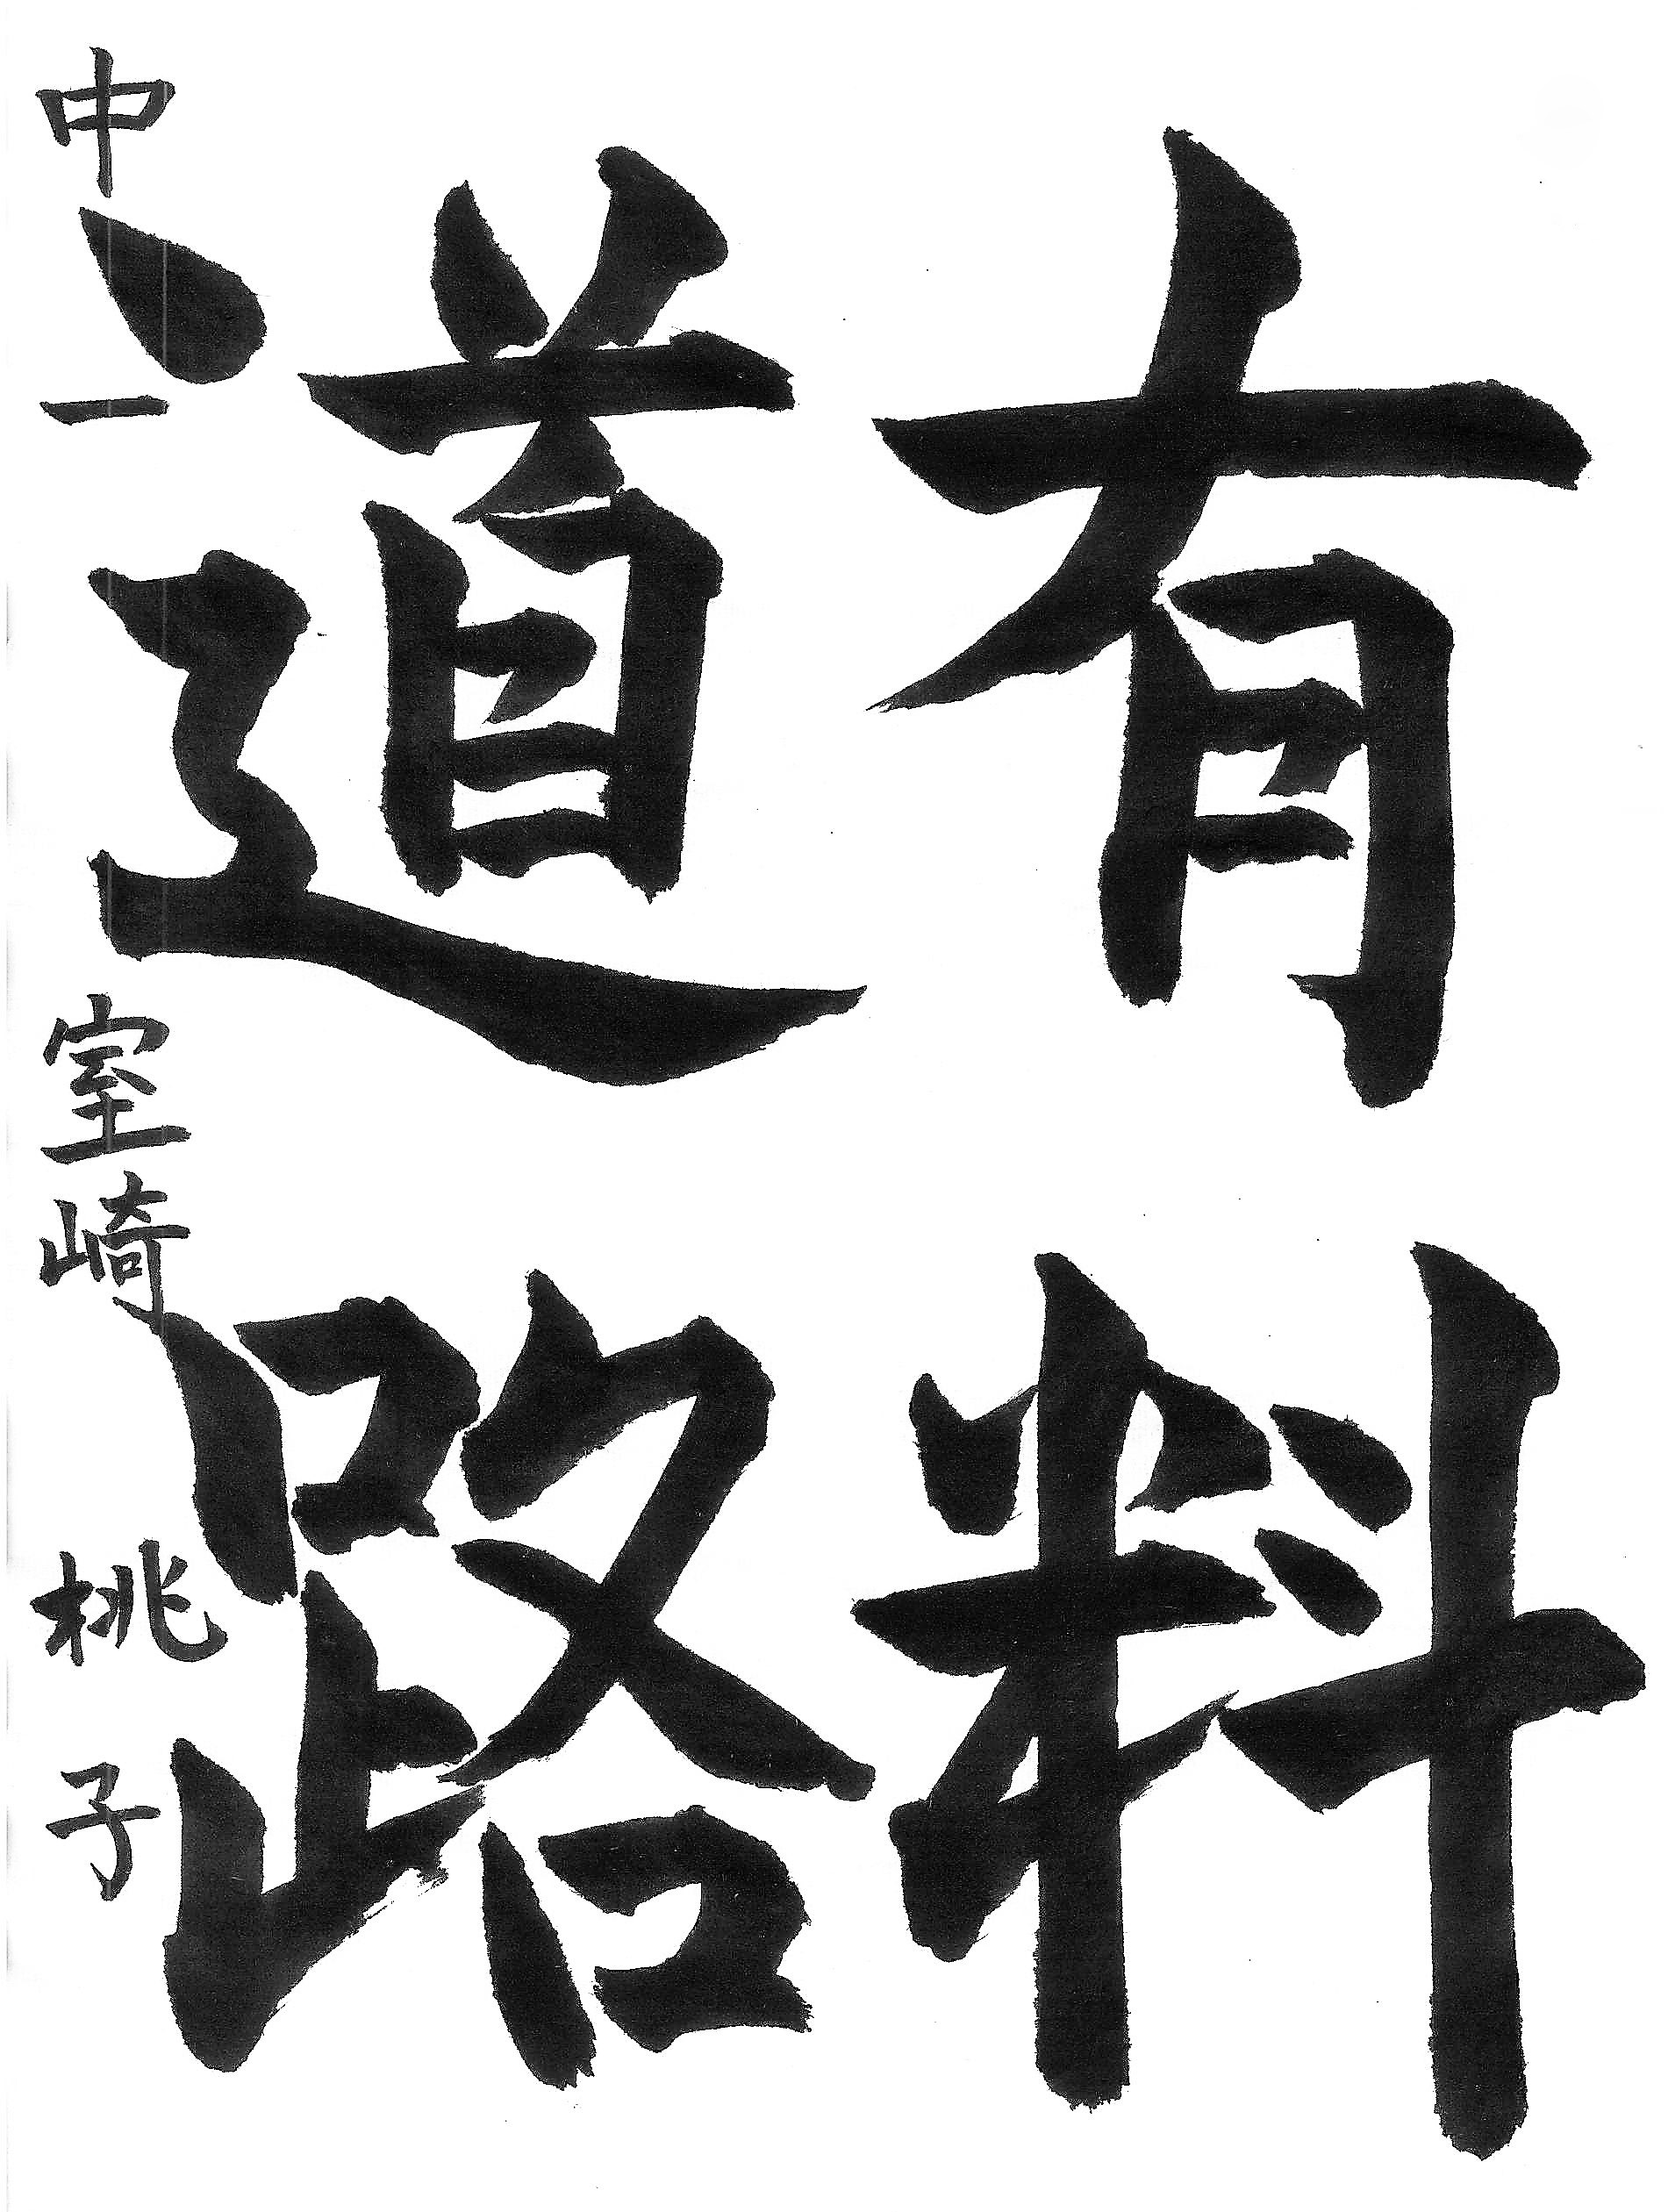 有料
道路
中一 室崎桃子